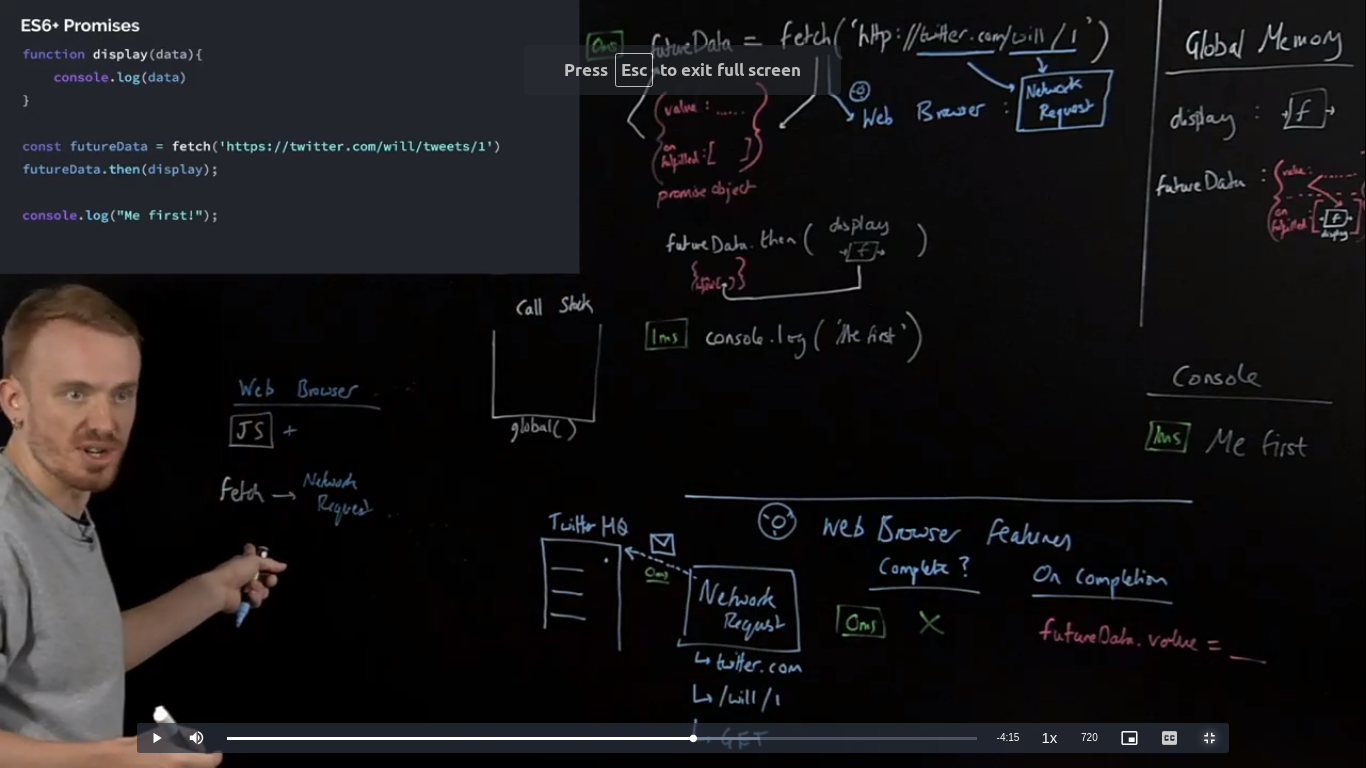 ES6+ Promises
function display(data){
console.log(data)
}
const futureData = fetch('https://twitter.com/will/tweets/1')
futureData.then(display);
console.log("Me first!");
Press Esc to exit full screen
0ms futureData = fetch('http://twitter.com/will/1')
value: ......
on
fulfilled: [ ]
promise object
Web Browser : Network
Request
futureData.then( display )
f
1ms console.log('Me first')
Call Stack
global()
Web Browser
JS +
fetch → Network
Request
Global Memory
display : f
futureData : value: ......
on
fulfilled: [ f ]
display
Console
1ms Me first
Web Browser Features
Twitter HQ
0ms
Network
Request
↳ twitter.com
↳ /will/1
↳ GET
Complete?
0ms X
On Completion
futureData.value = __
-4:15 1x 720 CC